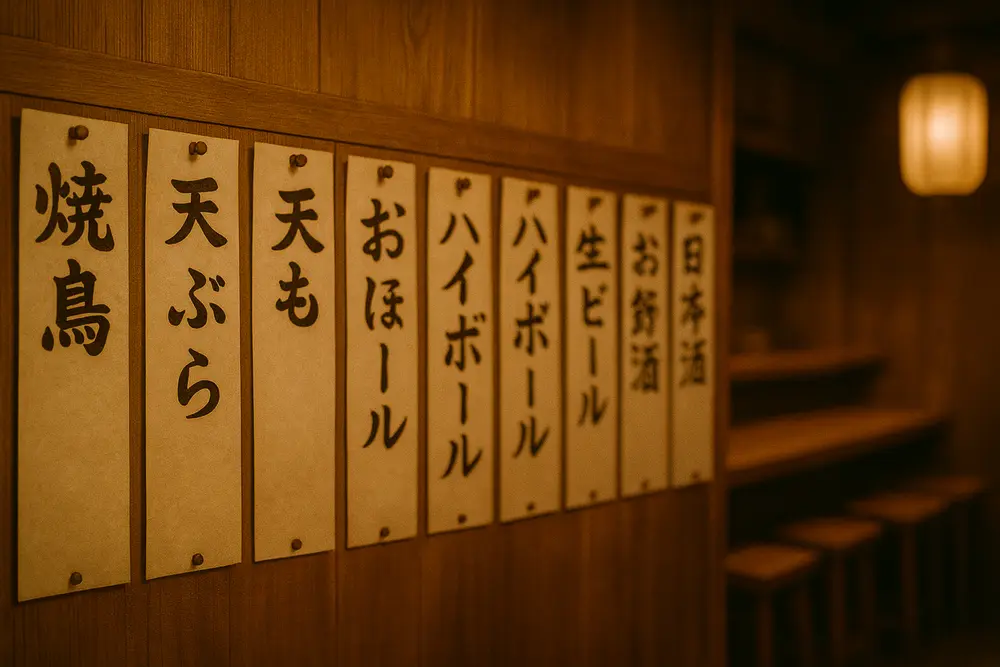 日本酒
生ビール
ハイボール
ハイボール
おほール
天も
天ぶら
焼鳥